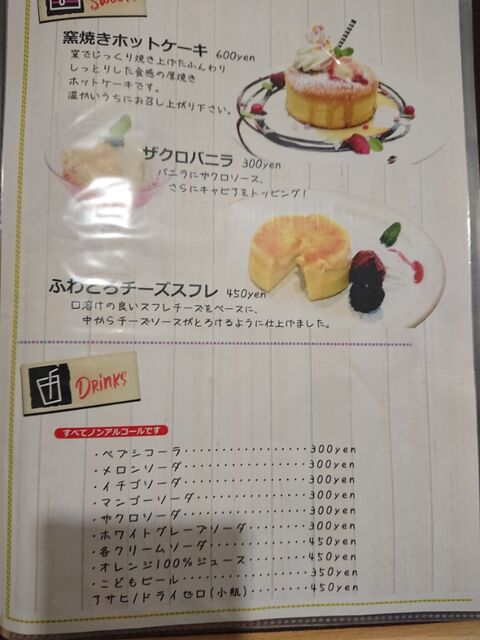 Sweets
窯焼きホットケーキ 600yen
窯でじっくり焼き上げたふんわり
しっとりした食感の厚焼き
ホットケーキです。
温かいうちにお召し上がり下さい。
ザクロバニラ 300yen
バニラにザクロソース、
さらにキャビアをトッピング！
ふわとろチーズスフレ 450yen
口溶けの良いスフレチーズをベースに、
中からチーズソースがとろけるように仕上げました。
Drinks
すべてノンアルコールです
・ペプシコーラ・・・・・・・・・・・・・・・・・300yen
・メロンソーダ・・・・・・・・・・・・・・・・・300yen
・イチゴソーダ・・・・・・・・・・・・・・・・・300yen
・マンゴーソーダ・・・・・・・・・・・・・・・300yen
・ザクロソーダ・・・・・・・・・・・・・・・・・300yen
・ホワイトグレープソーダ・・・・・・・・300yen
・各クリームソーダ・・・・・・・・・・・・・450yen
・オレンジ100%ジュース・・・・・・・・450yen
・こどもビール・・・・・・・・・・・・・・・・・350yen
アサヒ/ドライゼロ(小瓶)・・・・・・・・450yen